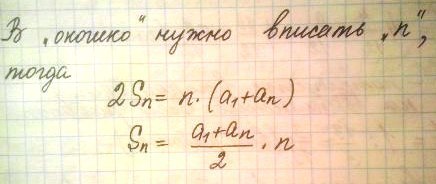 В „окошко“ нужно вписать „n“,
тогда
2Sn = n · (a₁+an)
Sn = (a₁+an)/2 · n